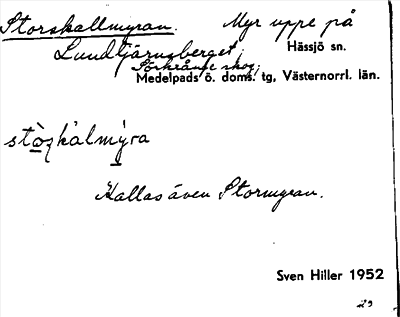 Storskallmyran. Myr uppe på
Lundtjärnsberget; Hässjö sn.
Sörkrånge skog;
Medelpads ö. doms. tg, Västernorrl. län.
Kallas även Stormyran.
Sven Hiller 1952
29